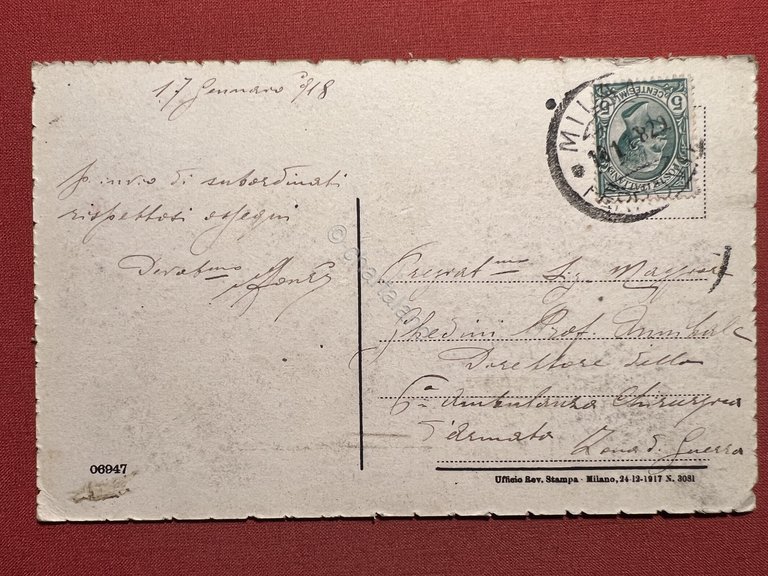 17 Gennaro 918
MILANO
5 CENTESIMI 5
POSTE ITALIANE
p. invio di subordinati
rispettosi ossegui
Devotmo
Pregiatmo Sig. Maggiore
Ghedini Prof. Annibale
Direttore della
6a Ambulanza Chirurgica
d'armata Zona d. Guerra
06947
Ufficio Rev. Stampa - Milano, 24-12-1917 N. 3081